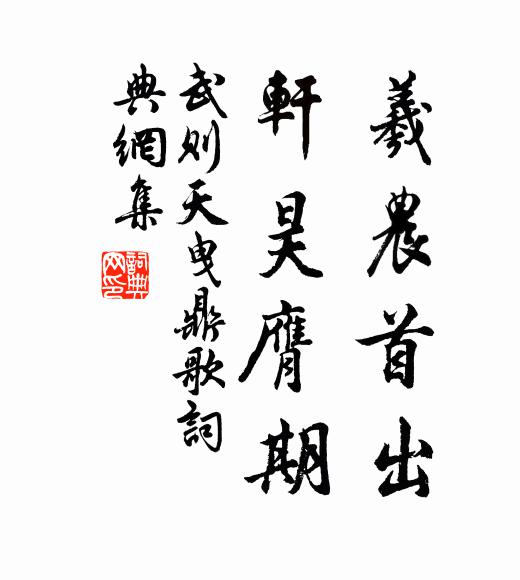 羲農首出
軒昊膺期
武則天曳鼎歌詞
典網集
詞典
网印